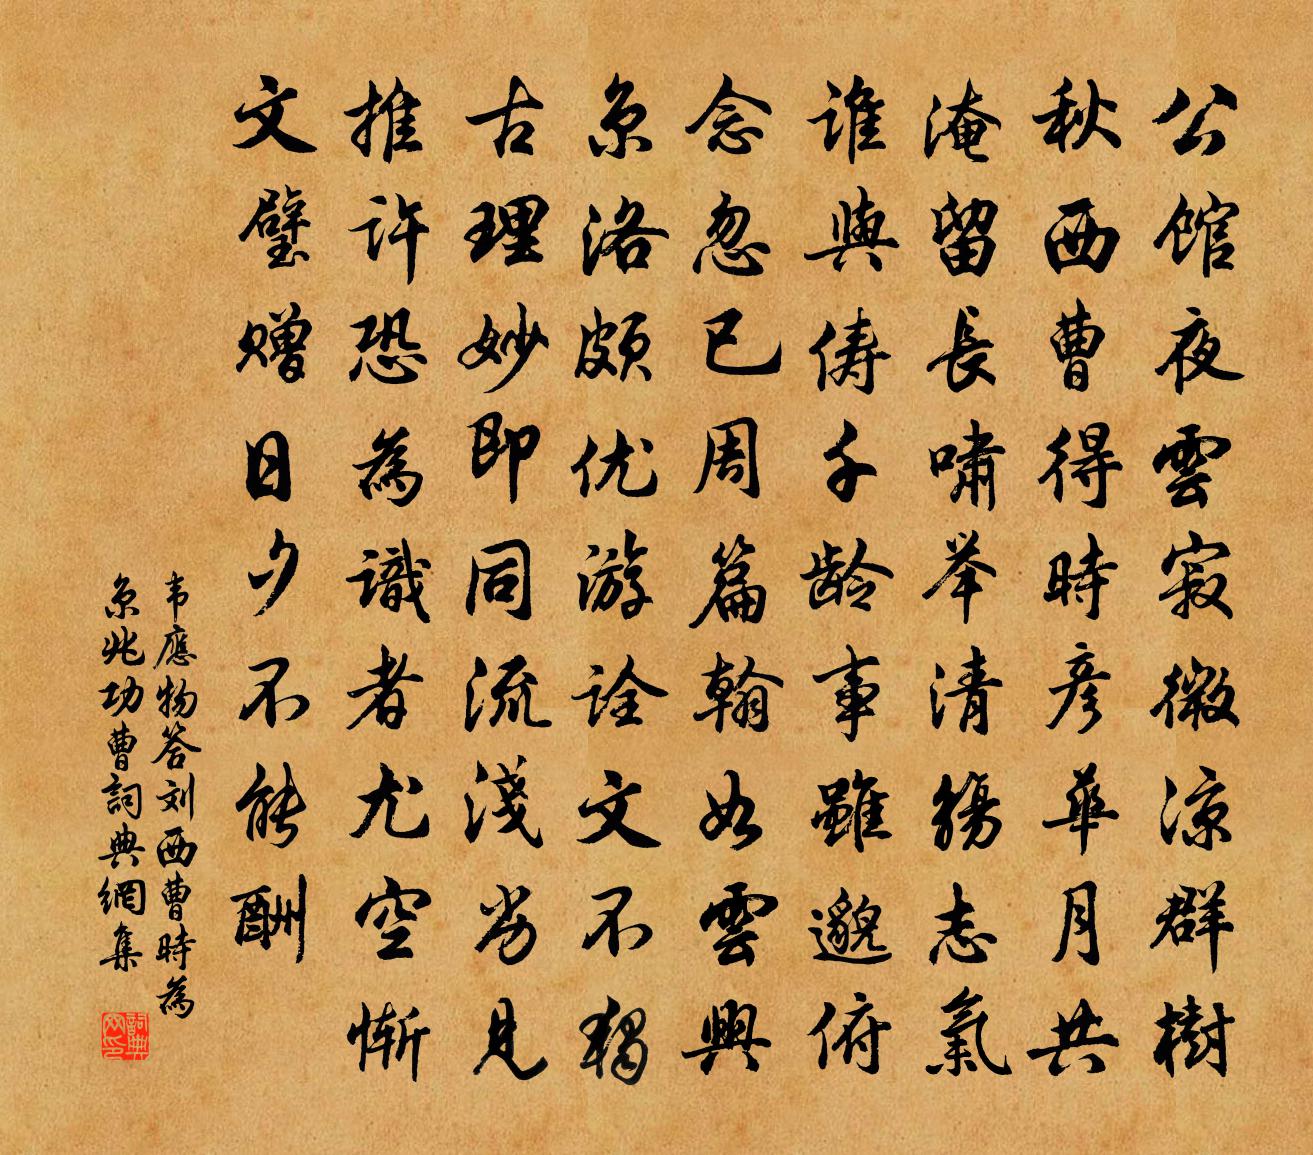 公館夜雲寂微涼群樹
秋西曹得時彥華月共
淹留長嘯舉清觴志氣
誰與儔千齡事雖邈俯
念忽已周篇翰如雲興
京洛頗优游詮文不獨
古理妙即同流淺劣見
推許恐為識者尤空慚
文璧赠日夕不能酬
韦應物答刘西曹時為
京兆功曹詞典網集
詞典
网印